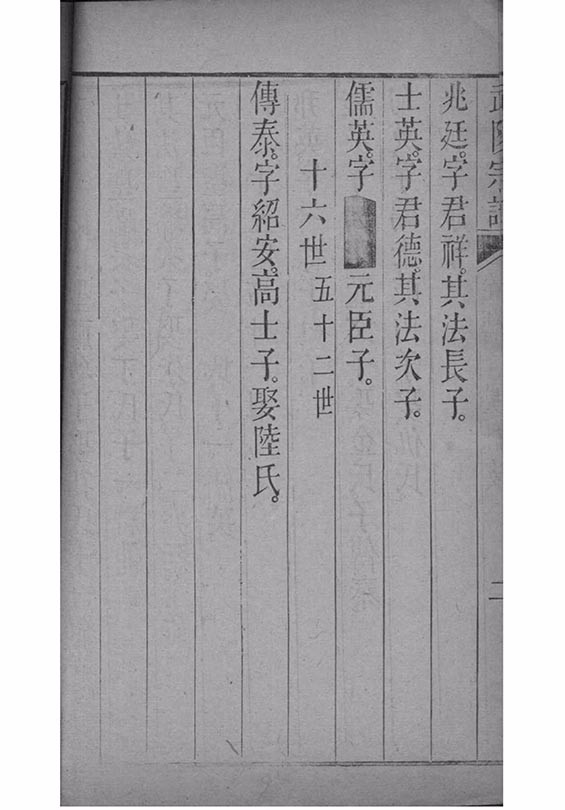 宗譜
兆廷。字君祥。其法長子。
士英。字君德。其法次子。
儒英。字元臣子。
十六世五十二世
傳泰。字紹安。高士子。娶陸氏。